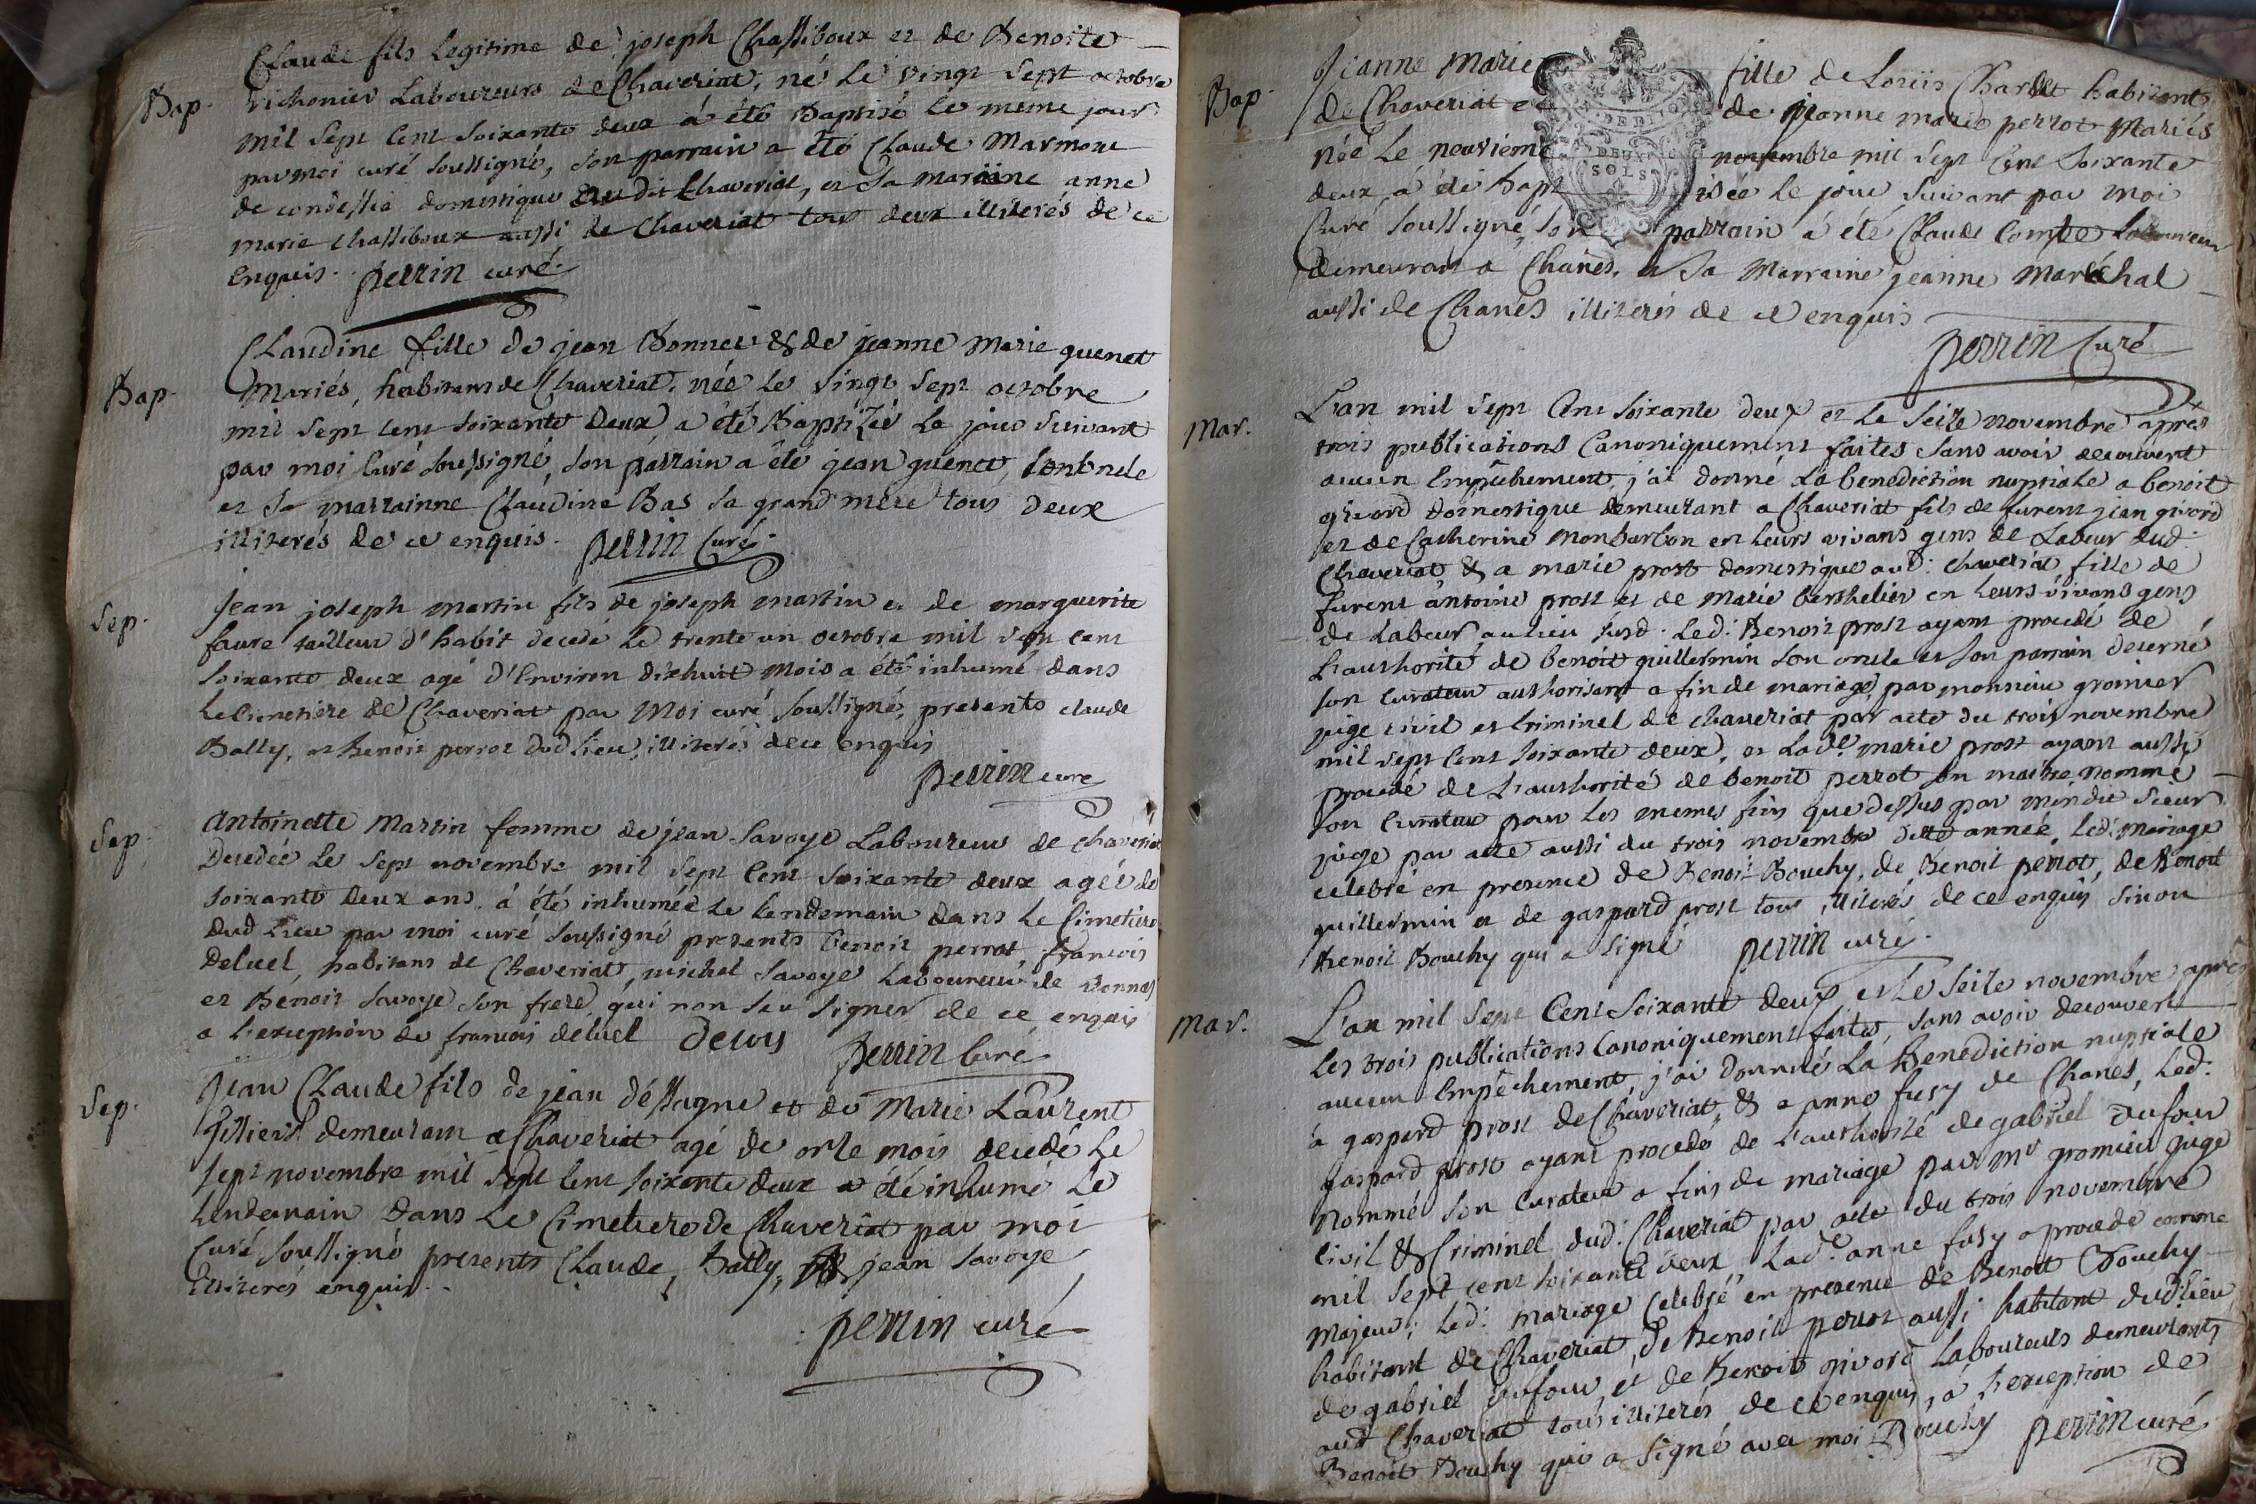 Bap.
Claude fils legitime de joseph Chassiboux et de Benoite
vichonier Laboureurs de Chaveriat, né Le vingt sept octobre
mil sept Cent soixante deux à été Baptisé le meme jour
par moi curé soussigné, son parrain a été Claude Marmont
de condessia domestique dudit Chaveriat, et sa maraine anne
marie Chassiboux aussi de Chaveriat tous deux illiterés de ce
enquis. perrin curé.
Bap.
Claudine fille de jean Bonnet & de jeanne Marie guenet
Mariés, habitans de Chaveriat, née le vingt sept octobre
mil sept cent soixante Deux a été Baptizée Le jour suivant
par moi Curé soussigné, son parrain a été jean guenet,
et sa marrainne Claudine Bas sa grand mere tous Deux
illiterés de ce enquis. perrin Curé.
Sep.
jean joseph martin fils de joseph martin et de marguerite
faure tailleur d'habit decedé Le trente un octobre mil sept cent
soixante deux agé d'Environ dixhuit mois a été inhumé dans
le Cimetiere de Chaveriat par Moi curé soussigné, presents claude
Bally, et Benoit perrot dud Lieu, illiterés de ce enquis
perrin curé
Sep.
Antoinette Martin femme de jean Savoye Laboureur de Chaveriat
Decedée Le sept novembre mil sept Cent soixante deux agée de
soixante deux ans à été inhumée Le Lendemain dans Le Cimetiere
dud Lieu par moi curé soussigné presents Benoit perrot, françois
deluel, habitans de Chaveriat, michel savoye Laboureur de vonnas
et Benoit savoye son frere, qui non seu signer de ce enquis
a l'exception de francois deluel perrin Curé
Sep.
Jean Claude fils de jean déssagne et de Marie Laurent
demeurant a Chaveriat agé de onze mois decedé Le
sept novembre mil sept Cent soixante deux a été inhumé Le
Lendemain dans Le Cimetiere de Chaveriat par moi
Curé soussigné presents Claude Bally, jean savoye
illiterés enquis.
perrin curé
DEUX
SOLS
Bap.
Jeanne Marie fille de Louis Charlet habitant
de Chaveriat et de jeanne marie perrot Mariés
née Le neuvieme novembre mil sept Cent soixante
deux, a été Baptisée le jour suivant par moi
Curé soussigné, son parrain a été Claude Comte Laboureur
demeurant a Chanés, et sa Marraine jeanne Maréchal
aussi de Chanés illiterés de ce enquis
perrin Curé
Mar.
L'an mil sept Cent soixante deux et Le seize novembre après
trois publications Canoniquement faites sans avoir decouvert
aucun Empêchement, j'ai donné La benediction nuptiale a benoit
givord domestique demeurant a Chaveriat fils de furent jean givord
et de Catherine Monbarbon en leurs vivans gens de Labeur dud.
Chaveriat, & a marie prost domestique aud: chaveriat fille de
furent antoine prost et de Marie berthelier en leurs vivans gens
de Labeur au lieu susd. Led: Benoit prost ayant procedé de
L'authorité de benoit guillermin son oncle et son parrain decerné
son Curateur authorisant a fin de mariage, par monsieur gromier
juge civil et Criminel de chaveriat par acte du trois novembre
mil sept Cent soixante deux, et Lade. marie prost ayant aussi
procedé de L'authorité de benoit perrot son maitre nommé
son Curateur pour les memes fins que dessus par mondit sieur
juge par acte aussi du trois novembre ditte année, led: Mariage
celebré en presence de Benoit Bouchy, de Benoit perrot, de Benoit
guillermin et de gaspard prost tous illiterés de ce enquis, sinon
Benoit Bouchy qui a signé perrin curé.
Mar.
L'an mil sept Cent soixante deux et Le seize novembre après
Les trois publications Canoniquement faites, sans avoir decouvert
aucun Empêchement, j'ai donné La Benediction nuptiale
à gaspard prost de Chaveriat, & a anne fusy de Chanes, Led:
gaspard prost ayant procedé de L'authorité de gabriel dufour
Nommé son Curateur a fins de mariage par Mr gromier juge
Civil & Criminel dud: Chaveriat par acte du trois novembre
mil sept cent soixante deux, Lade. anne fusy a procedé comme
Majeur; Led: Mariage Celebré en presence de Benoit Bouchy
habitant de Chaveriat, de Benoit perrot aussi habitant dud lieu
de gabriel dufour, et de Benoit givord Laboureurs demeurants
aud Chaveriat tous illiterés de ce enquis, à L'exception de
Benoit Bouchy qui a signé avec moi Bouchy perrin curé